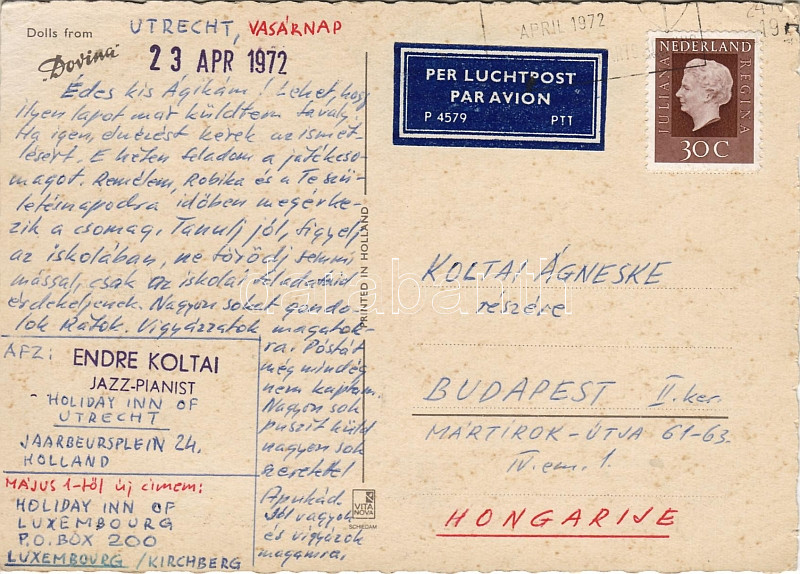 Dolls from
Dovina
UTRECHT, VASÁRNAP
23 APR 1972
Édes kis Ágikám! Lehet, hogy
ilyen lapot már küldtem tavaly.
Ha igen, elnézést kérek az ismét-
lésért. E héten feladom a játékcso-
magot. Remélem, Robika és a Te szü-
letésnapodra időben megérke-
zik a csomag. Tanulj jól, figyelj
az iskolában, ne törődj semmi
mással, csak az iskolai feladataid
érdekeljenek. Nagyon sokat gondo-
lok Rátok. Vigyázzatok magatok-
ra. Postát
még mindég
nem kaptam.
Nagyon sok
puszit küld
nagyon sok
szeretettel
Apukád.
Jól vagyok
és vigyázok
magamra.
AFZ:
ENDRE KOLTAI
JAZZ-PIANIST
HOLIDAY INN OF
UTRECHT
JAARBEURSPLEIN 24.
HOLLAND
MÁJUS 1-től új címem:
HOLIDAY INN OF
LUXEMBOURG
P.O. BOX 200
LUXEMBOURG /KIRCHBERG
PRINTED IN HOLLAND
VITA
NOVA
SCHIEDAM
PER LUCHTPOST
PAR AVION
P 4579 PTT
APRIL 1972
NEDERLAND
JULIANA REGINA
30 C
KOLTAI ÁGNESKE
részére
BUDAPEST II. ker.
MÁRTIROK-ÚTJA 61-63.
IV. em. 1.
HONGARIJE
darabanth